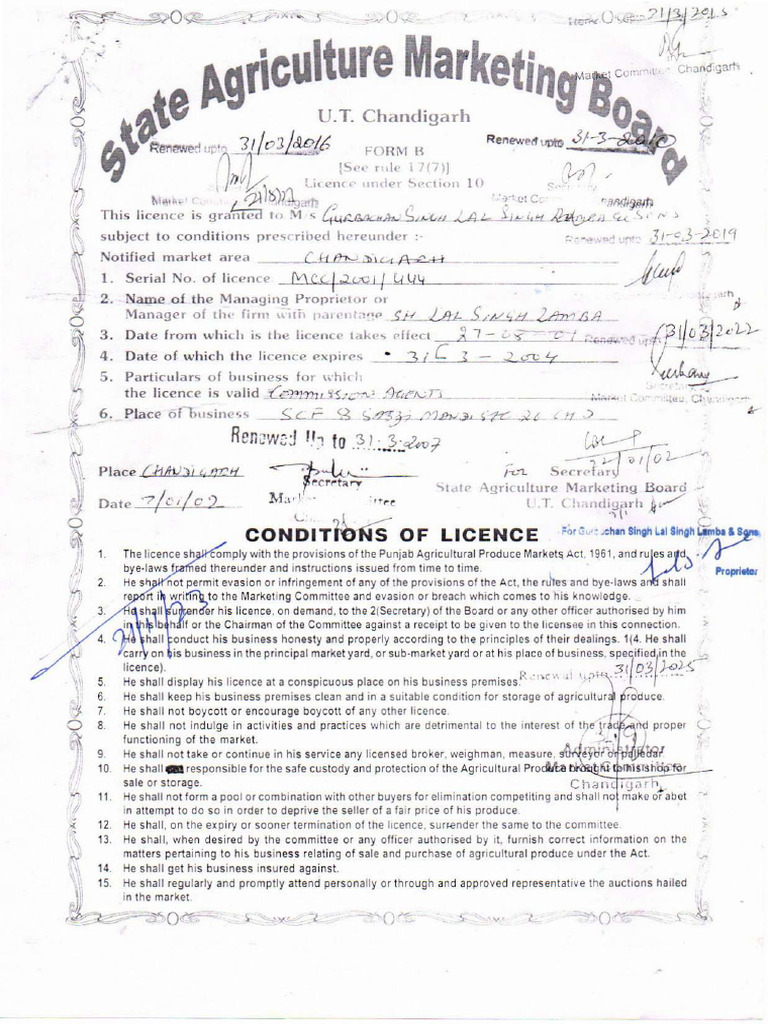 31/3/2013
Market Committee, Chandigarh
State Agriculture Marketing Board
U.T. Chandigarh
Renewed upto 31/03/2016
FORM B
Renewed upto 31-3-2010
[See rule 17(7)]
Licence under Section 10
Market Chandigarh
Market Com Chandigarh
This licence is granted to M/s GURBACHAN SINGH LAL SINGH LAMBA & SONS
subject to conditions prescribed hereunder :-
Renewed upto 31-03-2019
Notified market area CHANDIGARH
1. Serial No. of licence MCC/2001/444
2. Name of the Managing Proprietor or
Manager of the firm with parentage SH LAL SINGH LAMBA
3. Date from which is the licence takes effect 27-08-01
Renewed upto 31/03/2022
4. Date of which the licence expires 31-3-2004
5. Particulars of business for which
the licence is valid COMMISSION AGENTS
Market Committee, Chandigarh
6. Place of business SCF 8 SABZI MANDI SEC 26 CHD
Renewed Up to 31.3.2007
Place CHANDIGARH
Secretary
For Secretary
State Agriculture Marketing Board
Date 7/01/02
U.T. Chandigarh
CONDITIONS OF LICENCE
For Gurbachan Singh Lal Singh Lamba & Sons
Proprietor
1. The licence shall comply with the provisions of the Punjab Agricultural Produce Markets Act, 1961, and rules and
bye-laws framed thereunder and instructions issued from time to time.
2. He shall not permit evasion or infringement of any of the provisions of the Act, the rules and bye-laws and shall
report in writing to the Marketing Committee and evasion or breach which comes to his knowledge.
3. He shall surrender his licence, on demand, to the 2(Secretary) of the Board or any other officer authorised by him
in his behalf or the Chairman of the Committee against a receipt to be given to the licensee in this connection.
4. He shall conduct his business honesty and properly according to the principles of their dealings. 1(4. He shall
carry on his business in the principal market yard, or sub-market yard or at his place of business, specified in the
licence).
Renewal upto 31/03/2025
5. He shall display his licence at a conspicuous place on his business premises.
6. He shall keep his business premises clean and in a suitable condition for storage of agricultural produce.
7. He shall not boycott or encourage boycott of any other licence.
8. He shall not indulge in activities and practices which are detrimental to the interest of the trade and proper
functioning of the market.
9. He shall not take or continue in his service any licensed broker, weighman, measure, surveyor or palledar.
Administrator
10. He shall responsible for the safe custody and protection of the Agricultural Produce brought to his shop for
sale or storage.
Market Committee
Chandigarh
11. He shall not form a pool or combination with other buyers for elimination competing and shall not make or abet
in attempt to do so in order to deprive the seller of a fair price of his produce.
12. He shall, on the expiry or sooner termination of the licence, surrender the same to the committee.
13. He shall, when desired by the committee or any officer authorised by it, furnish correct information on the
matters pertaining to his business relating of sale and purchase of agricultural produce under the Act.
14. He shall get his business insured against.
15. He shall regularly and promptly attend personally or through and approved representative the auctions hailed
in the market.